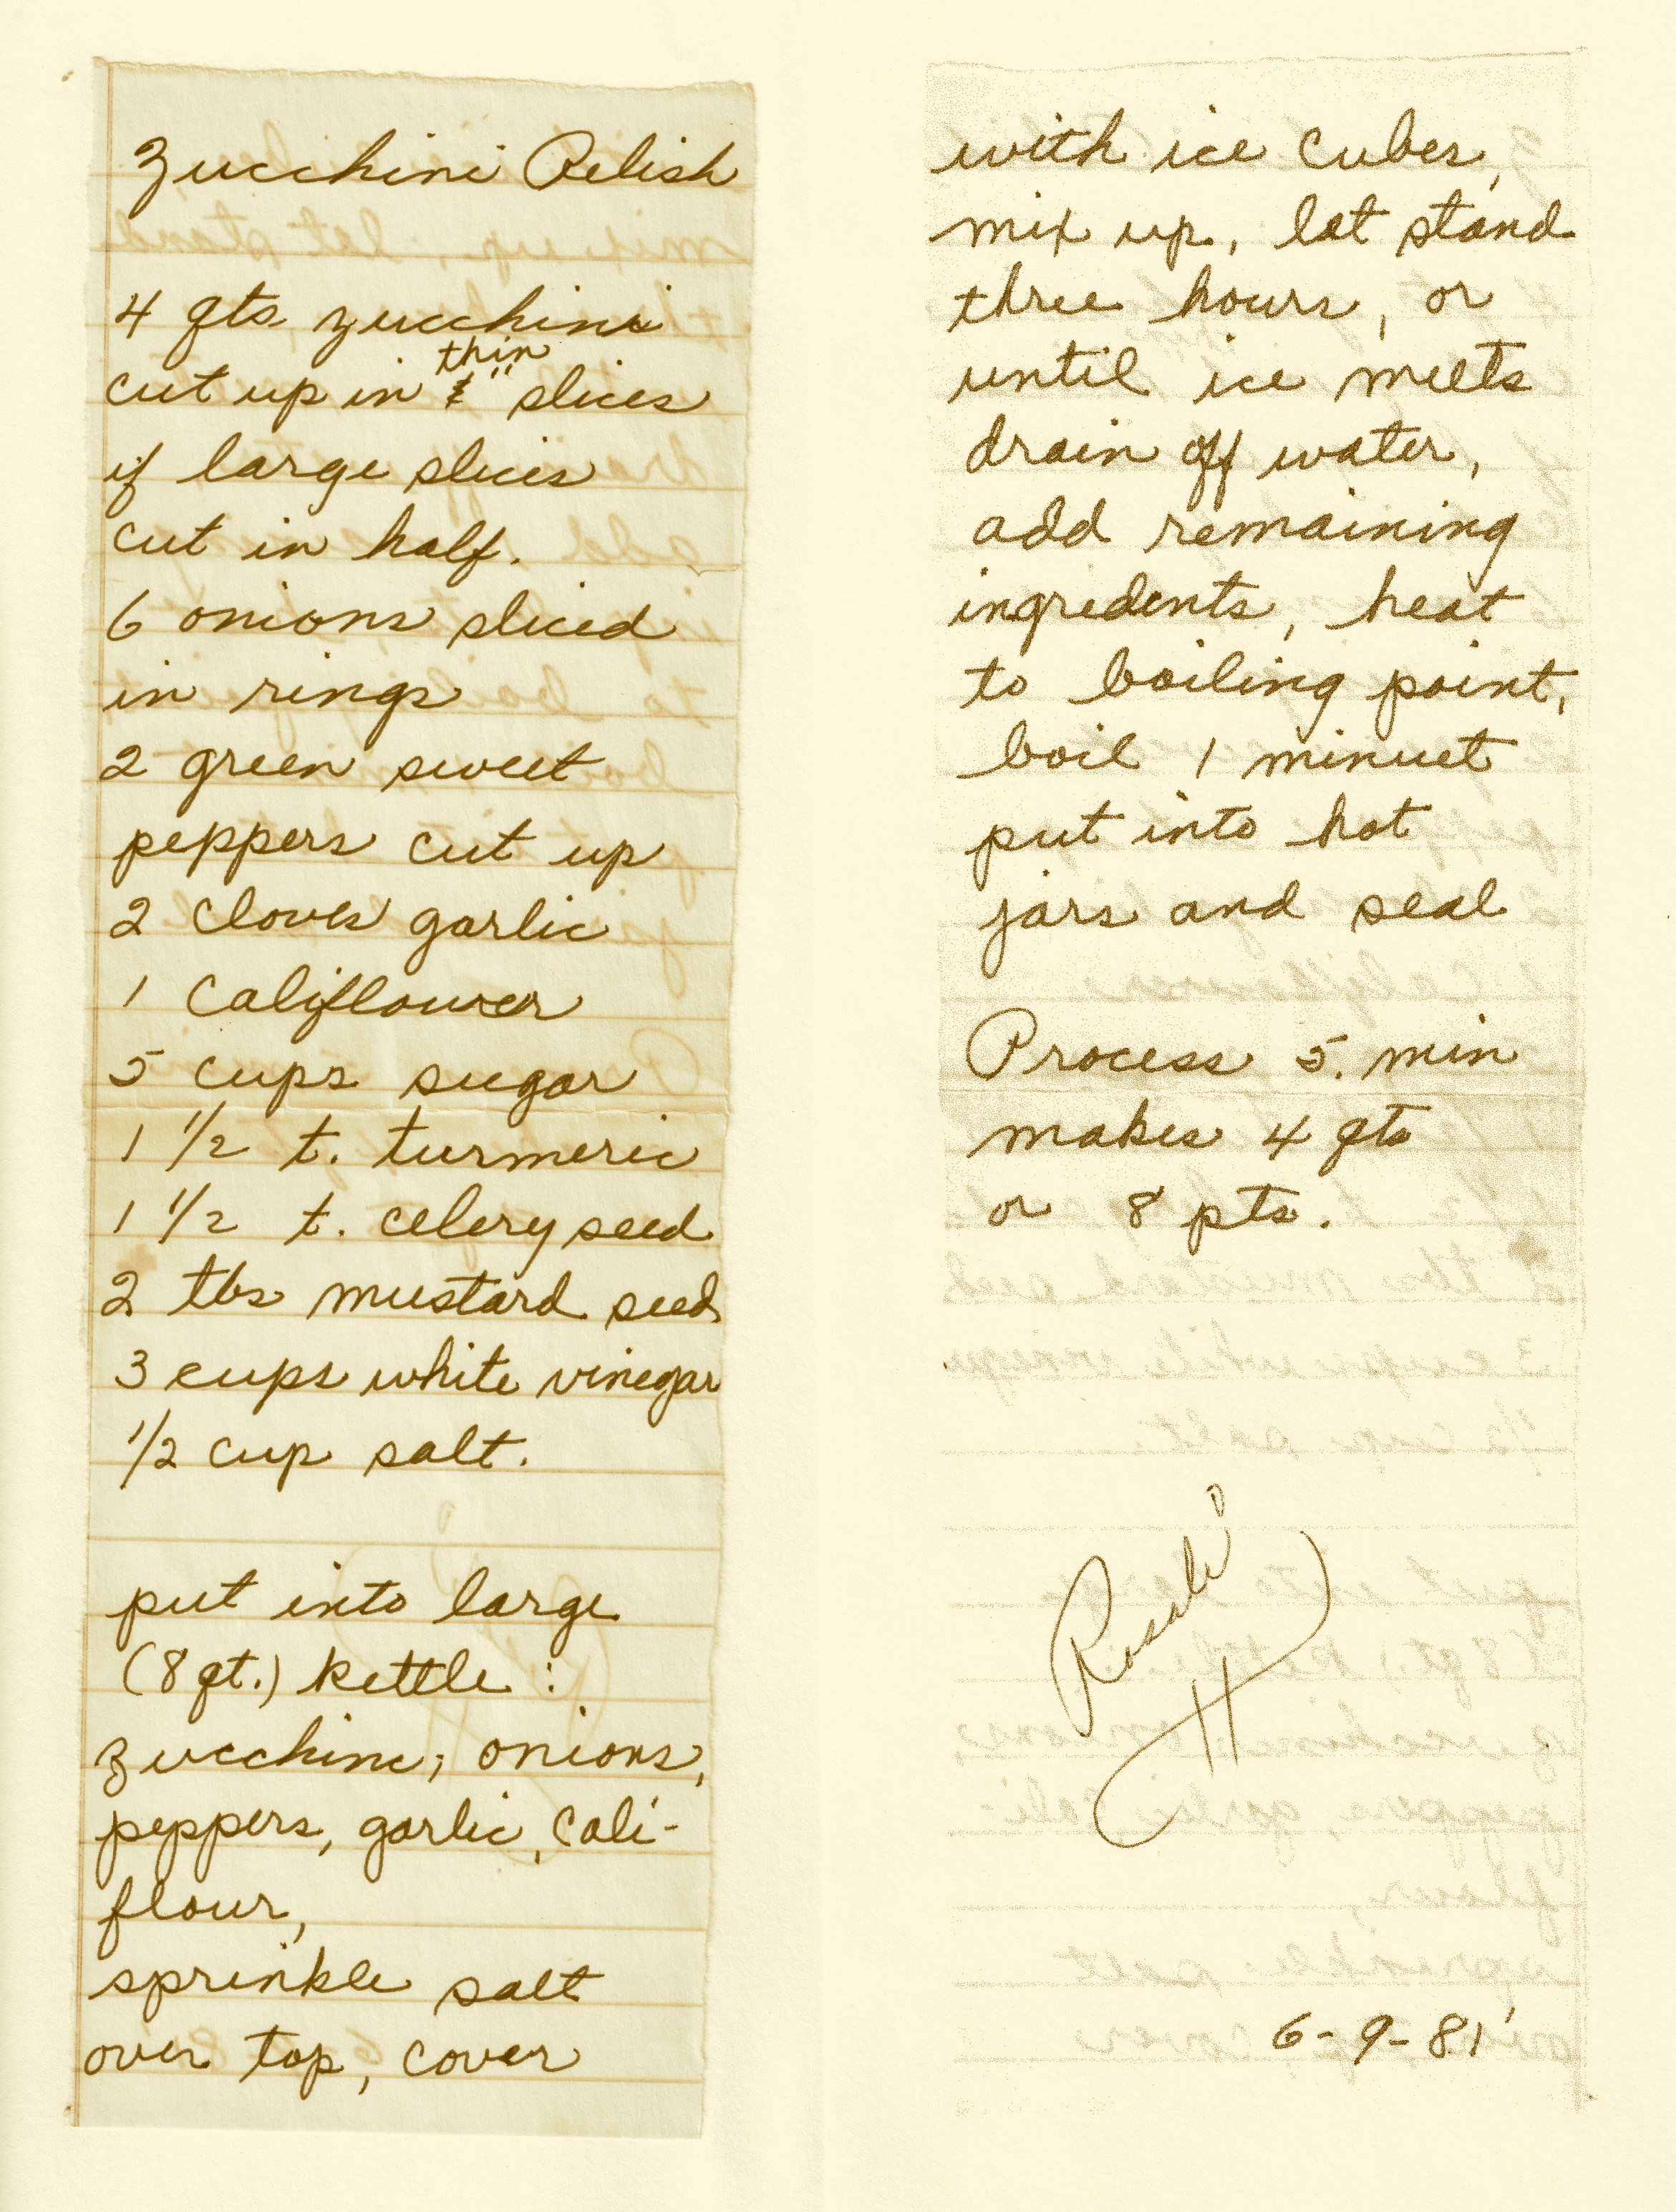 Zucchini Relish
4 qts zucchini
cut up in thin slices
if large slices
cut in half.
6 onions sliced
in rings
2 green sweet
peppers cut up
2 cloves garlic
1 Califlower
5 cups sugar
1 1/2 t. turmeric
1 1/2 t. celery seed
2 tbs mustard seed
3 cups white vinegar
1/2 cup salt.
put into large
(8 qt.) kettle :
zucchini, onions,
peppers, garlic, Cali-
flour,
sprinkle salt
over top, cover
with ice cubes,
mix up, let stand
three hours, or
until ice melts
drain off water,
add remaining
ingredents, heat
to boiling point,
boil 1 minuet
put into hot
jars and seal
Process 5. min
makes 4 qts
or 8 pts.
Rosali
H
6-9-81'